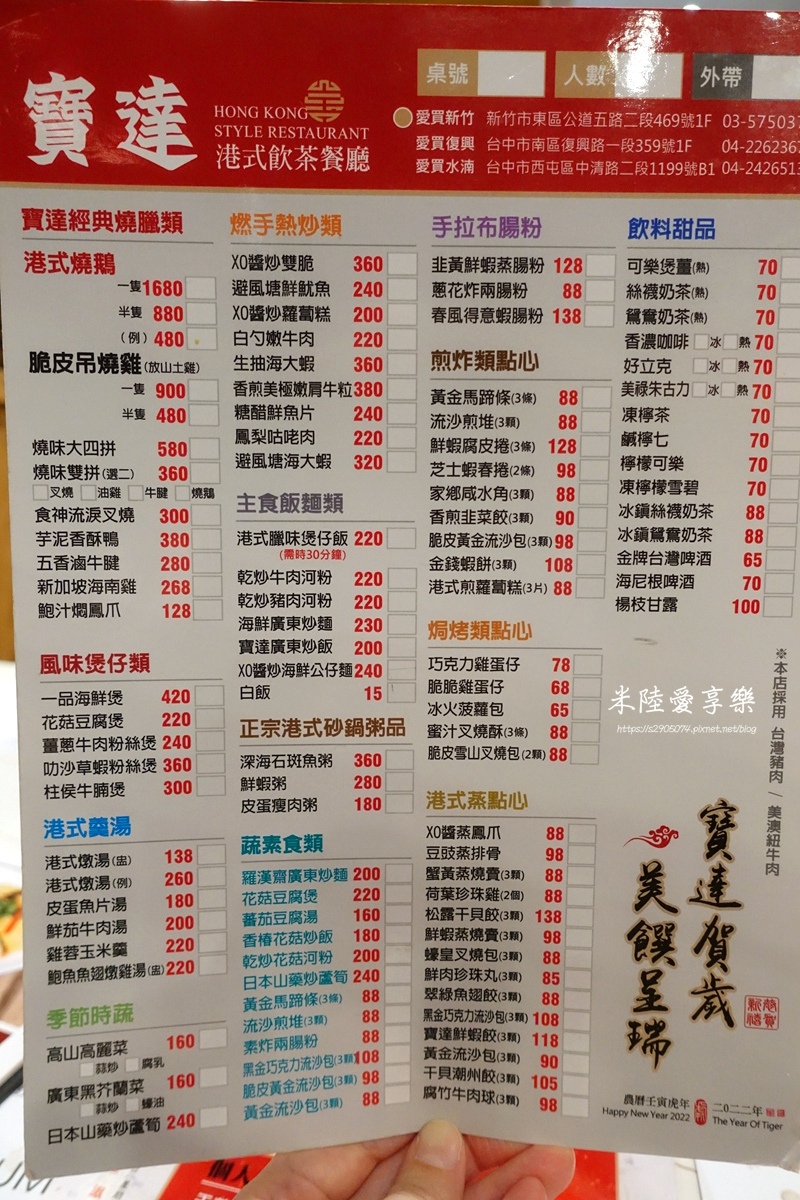 寶達
HONG KONG
STYLE RESTAURANT
港式飲茶餐廳
桌號
人數
外帶
愛買新竹 新竹市東區公道五路二段469號1F 03-575037
愛買復興 台中市南區復興路一段359號1F 04-2262367
愛買水湳 台中市西屯區中清路二段1199號B1 04-2426513
寶達經典燒臘類
港式燒鵝
一隻 1680
半隻 880
(例) 480
脆皮吊燒雞(放山土雞)
一隻 900
半隻 480
燒味大四拼 580
燒味雙拼(選二) 360
叉燒 油雞 牛腱 燒鵝
食神流淚叉燒 300
芋泥香酥鴨 380
五香滷牛腱 280
新加坡海南雞 268
鮑汁燜鳳爪 128
風味煲仔類
一品海鮮煲 420
花菇豆腐煲 220
薑蔥牛肉粉絲煲 240
叻沙草蝦粉絲煲 360
柱侯牛腩煲 300
港式羹湯
港式燉湯(盅) 138
港式燉湯(例) 260
皮蛋魚片湯 180
鮮茄牛肉湯 200
雞蓉玉米羹 220
鮑魚魚翅燉雞湯(盅) 220
季節時蔬
高山高麗菜 160
蒜炒 腐乳
廣東黑芥蘭菜 160
蒜炒 蠔油
日本山藥炒蘆筍 240
燃手熱炒類
XO醬炒雙脆 360
避風塘鮮魷魚 240
XO醬炒蘿蔔糕 200
白勺嫩牛肉 220
生抽海大蝦 360
香煎美極嫩肩牛粒 380
糖醋鮮魚片 240
鳳梨咕咾肉 220
避風塘海大蝦 320
主食飯麵類
港式臘味煲仔飯 220
(需時30分鐘)
乾炒牛肉河粉 220
乾炒豬肉河粉 220
海鮮廣東炒麵 230
寶達廣東炒飯 200
XO醬炒海鮮公仔麵 240
白飯 15
正宗港式砂鍋粥品
深海石斑魚粥 360
鮮蝦粥 280
皮蛋瘦肉粥 180
蔬素食類
羅漢齋廣東炒麵 200
花菇豆腐煲 220
蕃茄豆腐湯 160
香椿花菇炒飯 180
乾炒花菇河粉 200
日本山藥炒蘆筍 240
黃金馬蹄條(3條) 88
流沙煎堆(3顆) 88
素炸兩腸粉 88
黑金巧克力流沙包(3顆) 108
脆皮黃金流沙包(3顆) 98
黃金流沙包(3顆) 88
手拉布腸粉
韭黃鮮蝦蒸腸粉 128
蔥花炸兩腸粉 88
春風得意蝦腸粉 138
煎炸類點心
黃金馬蹄條(3條) 88
流沙煎堆(3顆) 88
鮮蝦腐皮捲(3條) 128
芝士蝦春捲(2條) 98
家鄉咸水角(3顆) 88
香煎韭菜餃(3顆) 90
脆皮黃金流沙包(3顆) 98
金錢蝦餅(3顆) 108
港式煎蘿蔔糕(3片) 88
焗烤類點心
巧克力雞蛋仔 78
脆脆雞蛋仔 68
冰火菠蘿包 65
蜜汁叉燒酥(3條) 88
脆皮雪山叉燒包(2顆) 88
港式蒸點心
XO醬蒸鳳爪 88
豆豉蒸排骨 98
蟹黃蒸燒賣(3顆) 88
荷葉珍珠雞(2個) 88
松露干貝餃(3顆) 138
鮮蝦蒸燒賣(3顆) 98
蠔皇叉燒包(3顆) 88
鮮肉珍珠丸(3顆) 85
翠綠魚翅餃(3顆) 88
黑金巧克力流沙包(3顆) 108
寶達鮮蝦餃(3顆) 118
黃金流沙包(3顆) 90
干貝潮州餃(3顆) 105
腐竹牛肉球(3顆) 98
飲料甜品
可樂煲薑(熱) 70
絲襪奶茶(熱) 70
鴛鴦奶茶(熱) 70
香濃咖啡 冰 熱 70
好立克 冰 熱 70
美祿朱古力 冰 熱 70
凍檸茶 70
鹹檸七 70
檸檬可樂 70
凍檸檬雪碧 70
冰鎮絲襪奶茶 88
冰鎮鴛鴦奶茶 88
金牌台灣啤酒 65
海尼根啤酒 70
楊枝甘露 100
※本店採用 台灣豬肉/美澳紐牛肉
米陸愛享樂
https://s2905074.pixnet.net/blog
寶達賀歲
美饌呈瑞
恭賀新禧
農曆壬寅虎年
Happy New Year 2022
二〇二二年
The Year Of Tiger